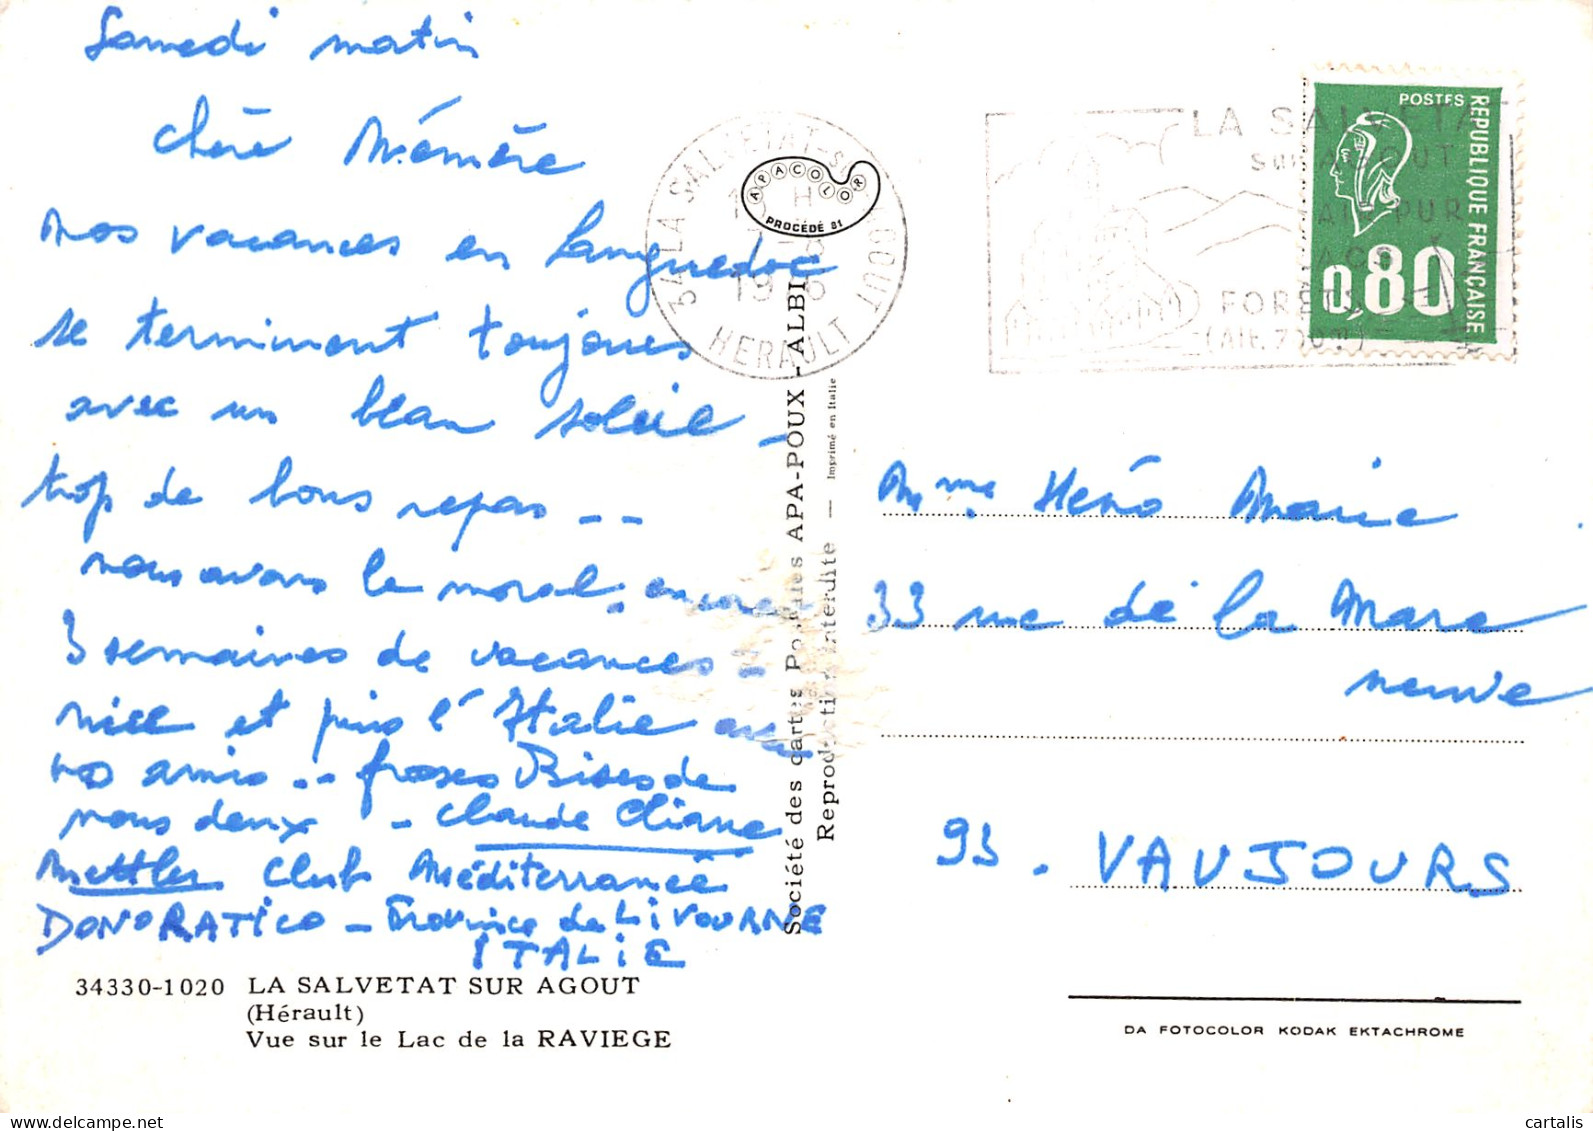 Samedi matin
chère Mémère
nos vacances en Languedoc
se terminent toujours
avec un beau soleil -
trop de bons repas --
nous avons le moral. encore
3 semaines de vacances -
nice et puis l'Italie avec
nos amis .. - grosses Bises de
nous deux - Claude Eliane
Mettler Club Méditerranée
DONORATICO - Province de LIVOURNE
ITALIE
34330-1020 LA SALVETAT SUR AGOUT
(Hérault)
Vue sur le Lac de la RAVIEGE
34 LA SALVETAT-S
AGOUT
HERAULT
APACOLOR
PROCÉDÉ 81
Société des cartes Postales APA-POUX - ALBI
Reproduction interdite — Imprimé en Italie
LA SALVETAT
SUR AGOUT
AIR PUR
LACS
FORÊTS
POSTES
REPUBLIQUE FRANÇAISE
0,80
Mme Marie
33 rue de la Mare
neuve
93. VAUJOURS
DA FOTOCOLOR KODAK EKTACHROME
cartalis